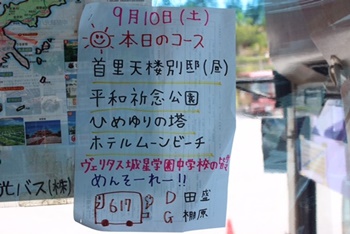 9月10日(土)
本日のコース
首里天楼別邸(昼)
平和祈念公園
ひめゆりの塔
ホテルムーンビーチ
ヴェリタス城星学園中学校の皆様
めんそーれー!!
617
D 田盛
G 相原
光バス(株)